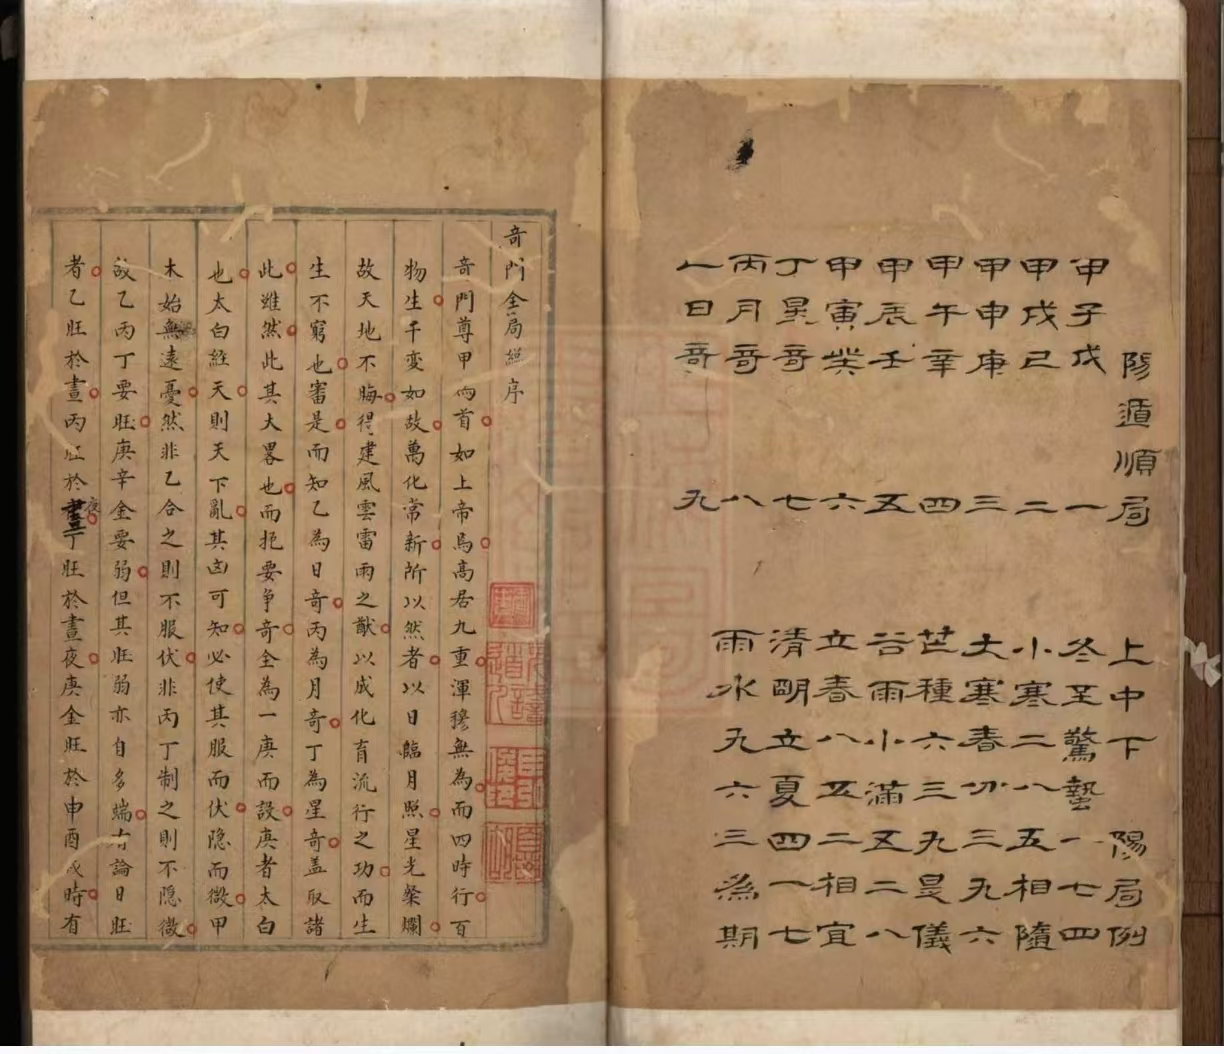 陽遁順局
甲子戊 一
甲戌己 二
甲申庚 三
甲午辛 四
甲辰壬 五
甲寅癸 六
丁星奇 七
丙月奇 八
乙日奇 九
上中下 陽局例
冬至驚蟄一七四
小寒二八五相隨
大寒春分三九六
芒種六三九是儀
谷雨小滿五二八
立春八五二相宜
清明立夏四一七
雨水九六三為期
奇門全局總序
奇門尊甲為首如上帝焉高居九重渾穆無為而四時行百
物生千變如故萬化常新所以然者以日臨月照星光粲爛
故天地不晦得建風雲雷雨之猷以成化育流行之功而生
生不窮也審是而知乙為日奇丙為月奇丁為星奇蓋取諸
此雖然此其大畧也而扼要爭奇全為一庚而設庚者太白
也太白經天則天下亂其凶可知必使其服而伏隱而微甲
木始無遠憂然非乙合之則不服伏非丙丁制之則不隱微
故乙丙丁要旺庚辛金要弱但其旺弱亦自多端有論日旺
者乙旺於晝丙旺於夜丁旺於晝夜庚金旺於申酉戌時有